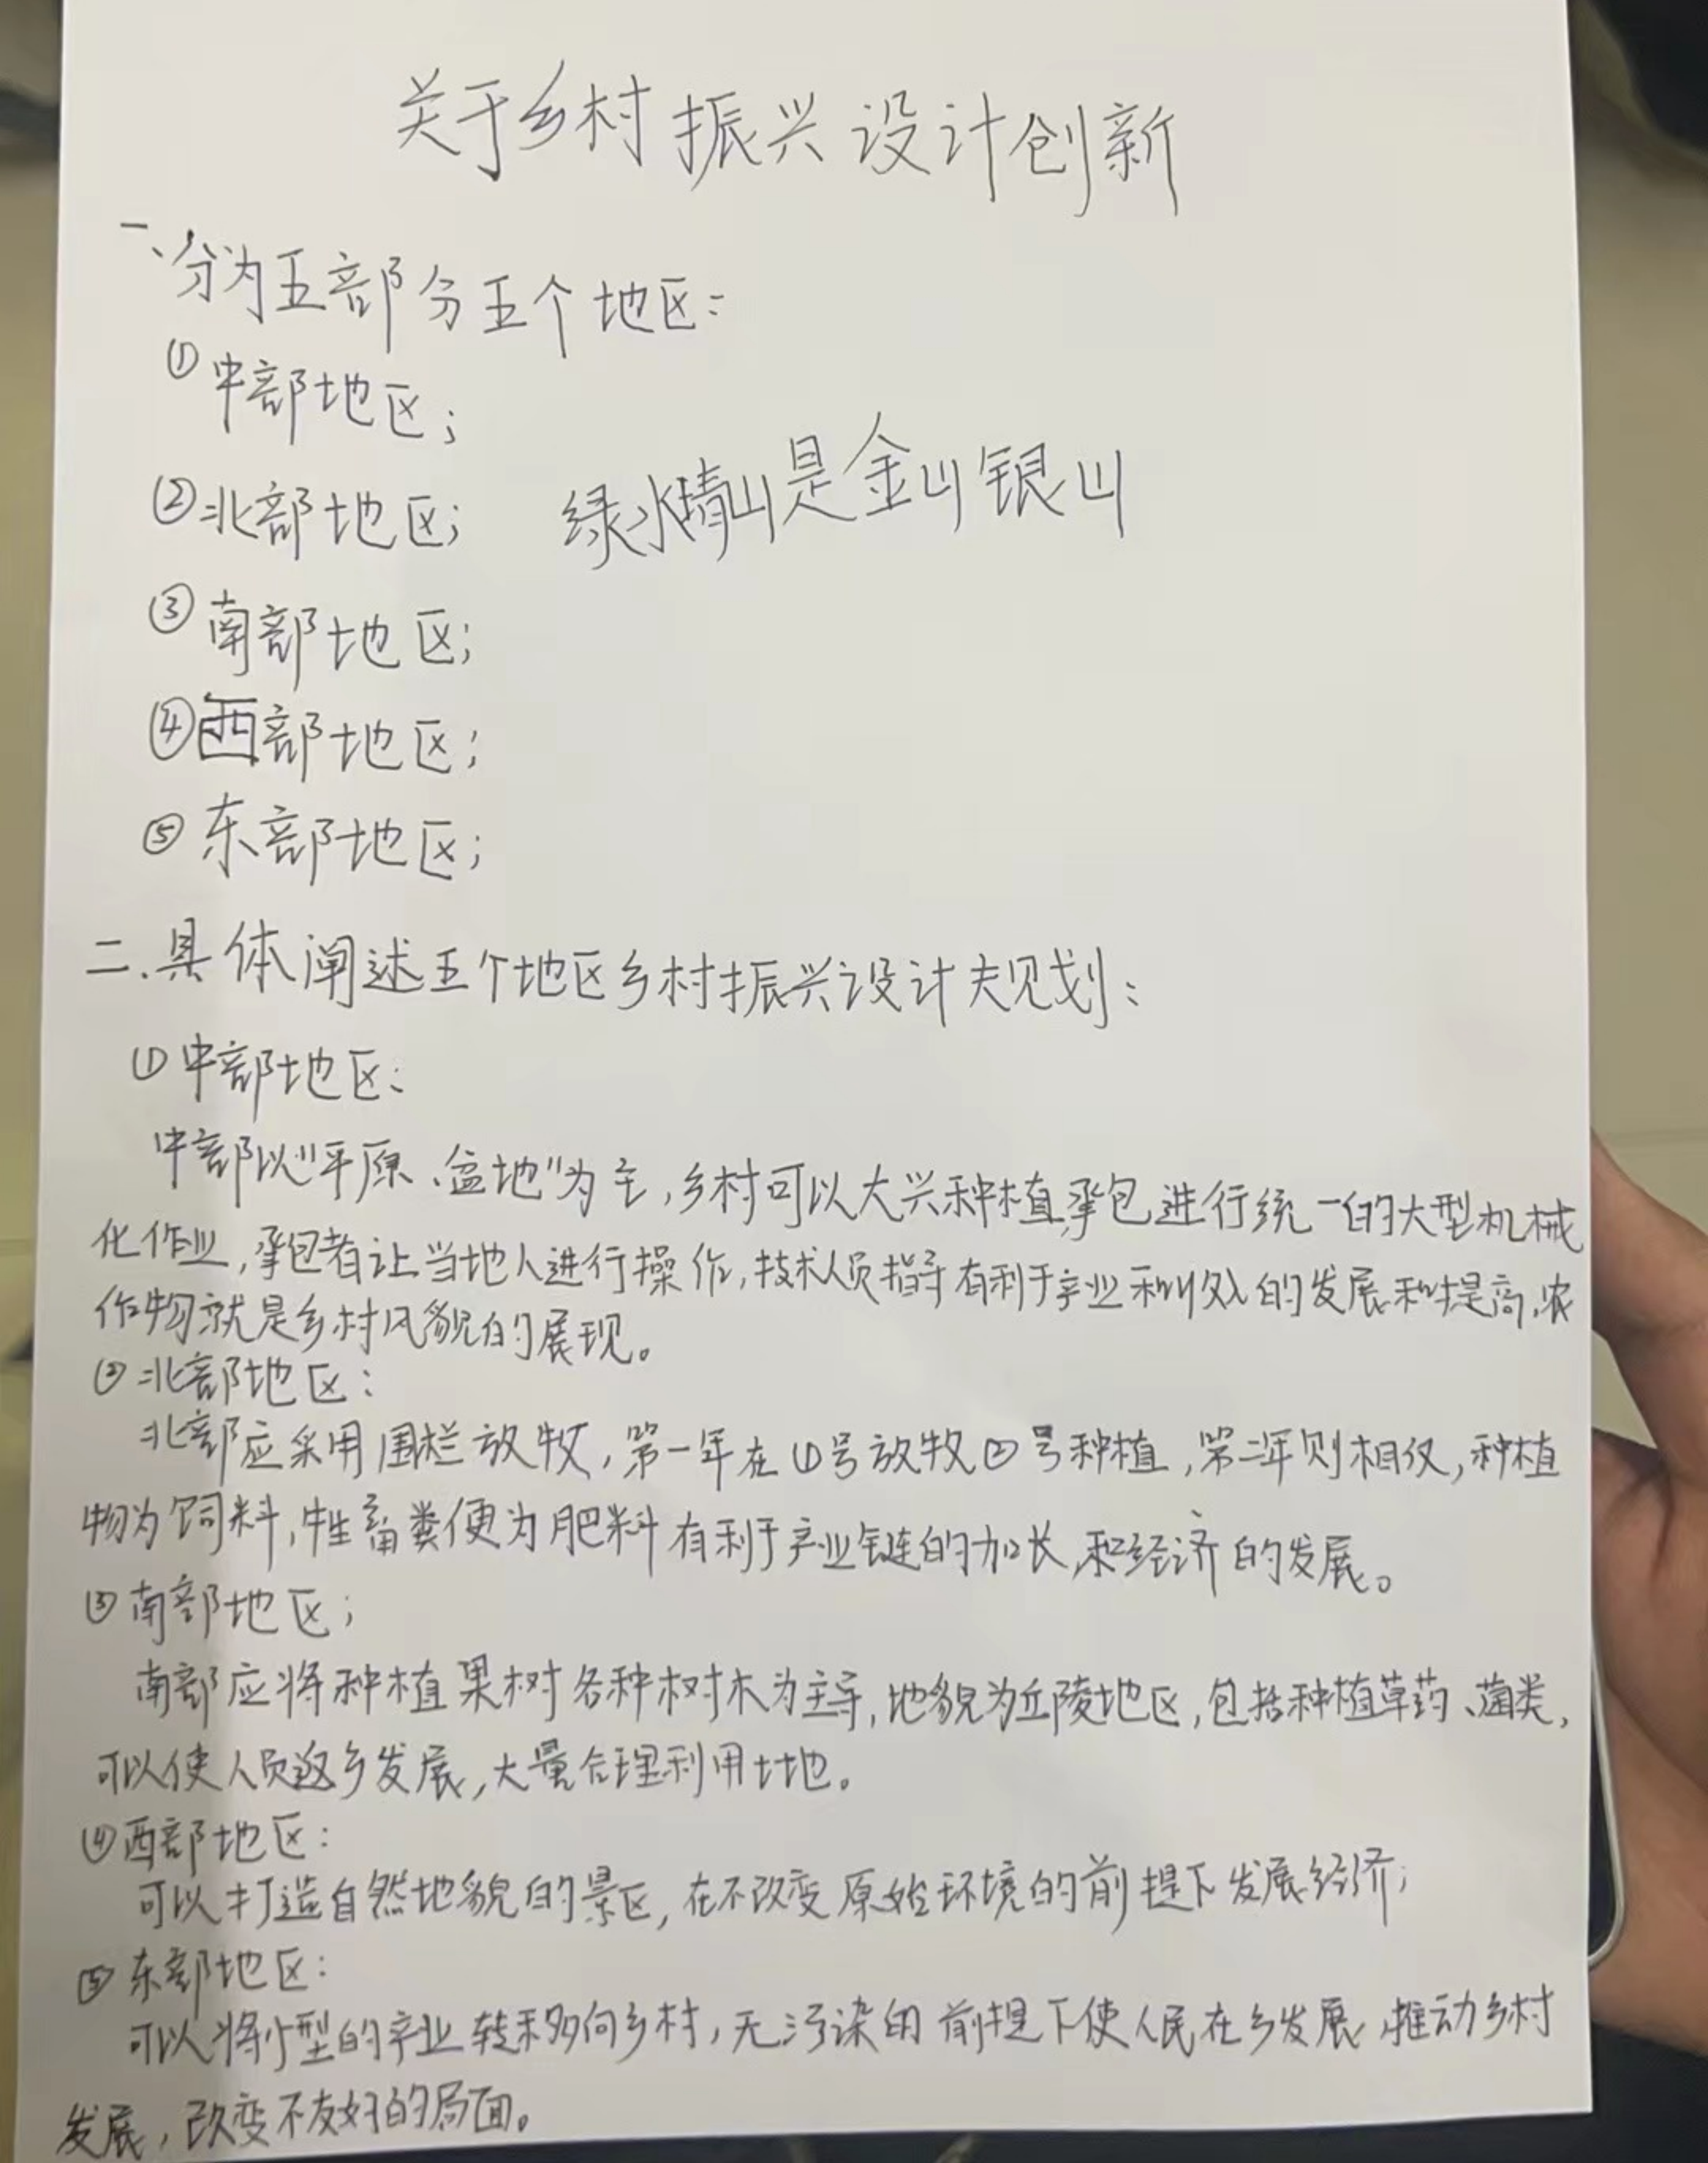 关于乡村振兴设计创新
一、分为五部分五个地区：
①中部地区；
②北部地区；
绿水青山是金山银山
③南部地区；
④西部地区；
⑤东部地区；
二、具体阐述五个地区乡村振兴设计规划：
①中部地区：
中部以“平原、盆地”为主，乡村可以大兴种植，承包进行统一的大型机械
化作业，承包者让当地人进行操作，技术人员指导有利于产业和收入的发展和提高，农
作物就是乡村风貌的展现。
②北部地区：
北部应采用围栏放牧，第一年在①号放牧②号种植，第二年则相反，种植
物为饲料，牲畜粪便为肥料有利于产业链的加长，和经济的发展。
③南部地区；
南部应将种植果树各种树木为主导，地貌为丘陵地区，包括种植草药、菌类，
可以使人员返乡发展，大量合理利用土地。
④西部地区：
可以打造自然地貌的景区，在不改变原始环境的前提下发展经济；
⑤东部地区：
可以将小型的产业转移向乡村，无污染的前提下使人民在乡发展，推动乡村
发展，改变不友好的局面。